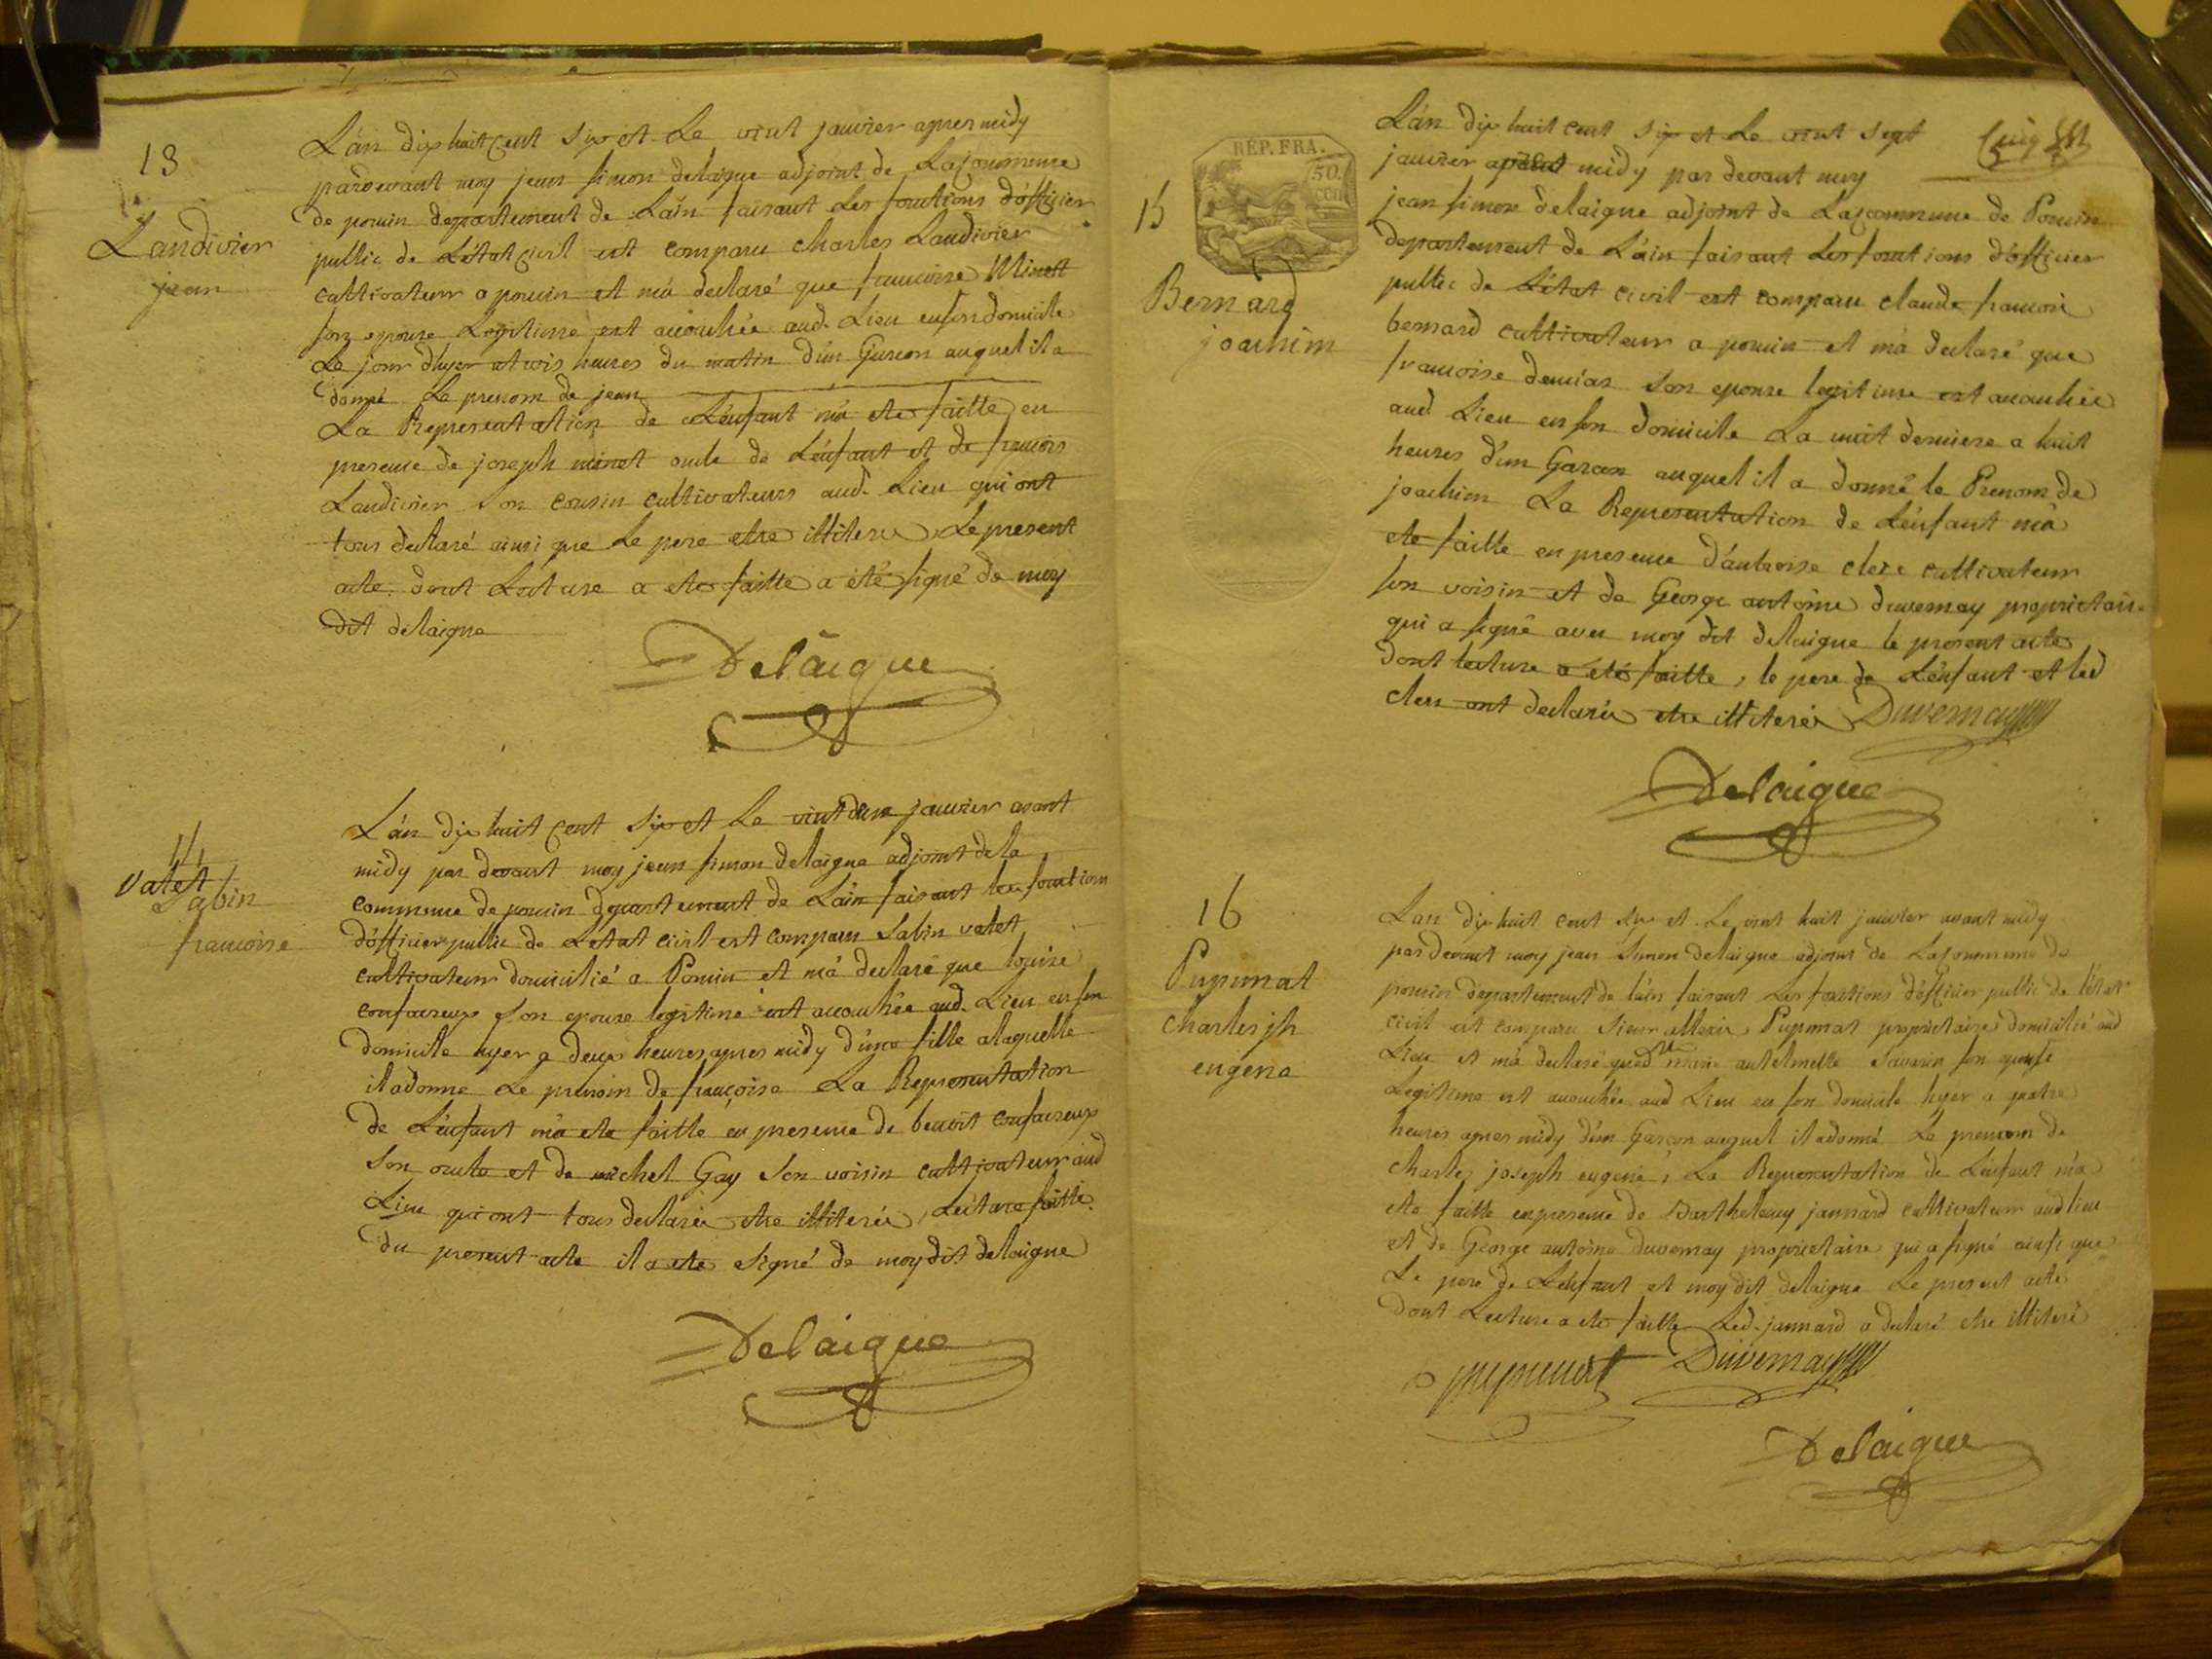 13
Landivier
jean
L'án dix huit Cent Six et Le vint janvier apres midy
pardevant moy jean simon delaigue adjoint de La Commune
de poncin departement de L'ain faisant Les fonctions d'officier
public de L'état Civil est comparu charles Landivier
cultivateur a poncin et m'a declaré que francoise Minet
son epouse Legitime est accouchée aud. Lieu en son domicile
Le jour d'hyer a trois heures du matin d'un Garcon auquel il a
donné Le prenom de jean
La Representation de L'enfant m'a eté faitte en
presence de joseph minet oncle de L'enfant et de francois
Landivier son cousin cultivateurs aud. Lieu qui ont
tous declaré ainsi que Le pere etre illiterés, Le present
acte dont Lecture a eté faitte a été signé de moy
dit delaigue
Delaigue
14
Valet
Sabin
francoise
L'án dix huit Cent Six et Le janvier avant
midy par devant moy jean simon delaigue adjoint de la
commune de poncin departement de L'ain faisant les fonctions
d'officier public de L'etat Civil est comparu Sabin valet
cultivateur domicilié a Poncin et m'a declaré que louise
son epouse legitime est accouchée aud. Lieu en son
domicile hyer a deux heures apres midy d'une fille a laquelle
il a donné Le prenom de françoise La Representation
de L'enfant m'a eté faitte en presence de benoit
son oncle et de michel Gay son voisin cultivateur aud
Lieu qui ont tous declarés etre illiterés, Lecture faitte
du present acte il a eté signé de moy dit delaigue
Delaigue
REP. FRA.
50.
CEN
15
Bernard
joachim
L'án dix huit Cent Six et Le vint Sept
janvier midy par devant moy
jean simon delaigue adjoint de La commune de Poncin
departement de L'ain faisant Les fonctions d'officier
public de L'état Civil est comparu claude francois
bernard cultivateur a poncin et m'a declaré que
francoise son epouse legitime est accouchée
aud Lieu en son domicile La nuit derniere a huit
heures d'un Garcon auquel il a donné le Prenom de
joachim La Representation de L'enfant m'a
eté faitte en presence d'ambroise clerc cultivateur
son voisin et de George antoine duvernay proprietaire
qui a signé avec moy dit delaigue le present acte
dont lecture a eté faitte, le pere de L'enfant et led
clerc ont declarés etre illiterés Duvernay
Delaigue
16
Pupunat
charles jh
eugene
Lan dix huit cent Six et Le vint huit janvier avant midy
par devant moy jean Simon delaigue adjoint de La Commune de
poncin departement de l'ain faisant Les fonctions d'officier public de l'état
civil est comparu Sieur Pupunat proprietaire domicilié aud
Lieu et m'a declaré que marie antelmette Savarin son epouse
Legitime est accouchée aud Lieu en son domicile hyer a quatre
heures apres midy d'un Garçon auquel il a donné Le prenom de
charles joseph eugene, La Representation de L'enfant m'a
eté faitte en presence de Barthelemy jannard cultivateur aud lieu
et de George antoine duvernay proprietaire qui a signé ainsi que
Le pere de L'enfant et moy dit delaigue Le present acte
dont Lecture a eté faitte Led. jannard a declaré etre illiteré
pupunat Duvernay
Delaigue